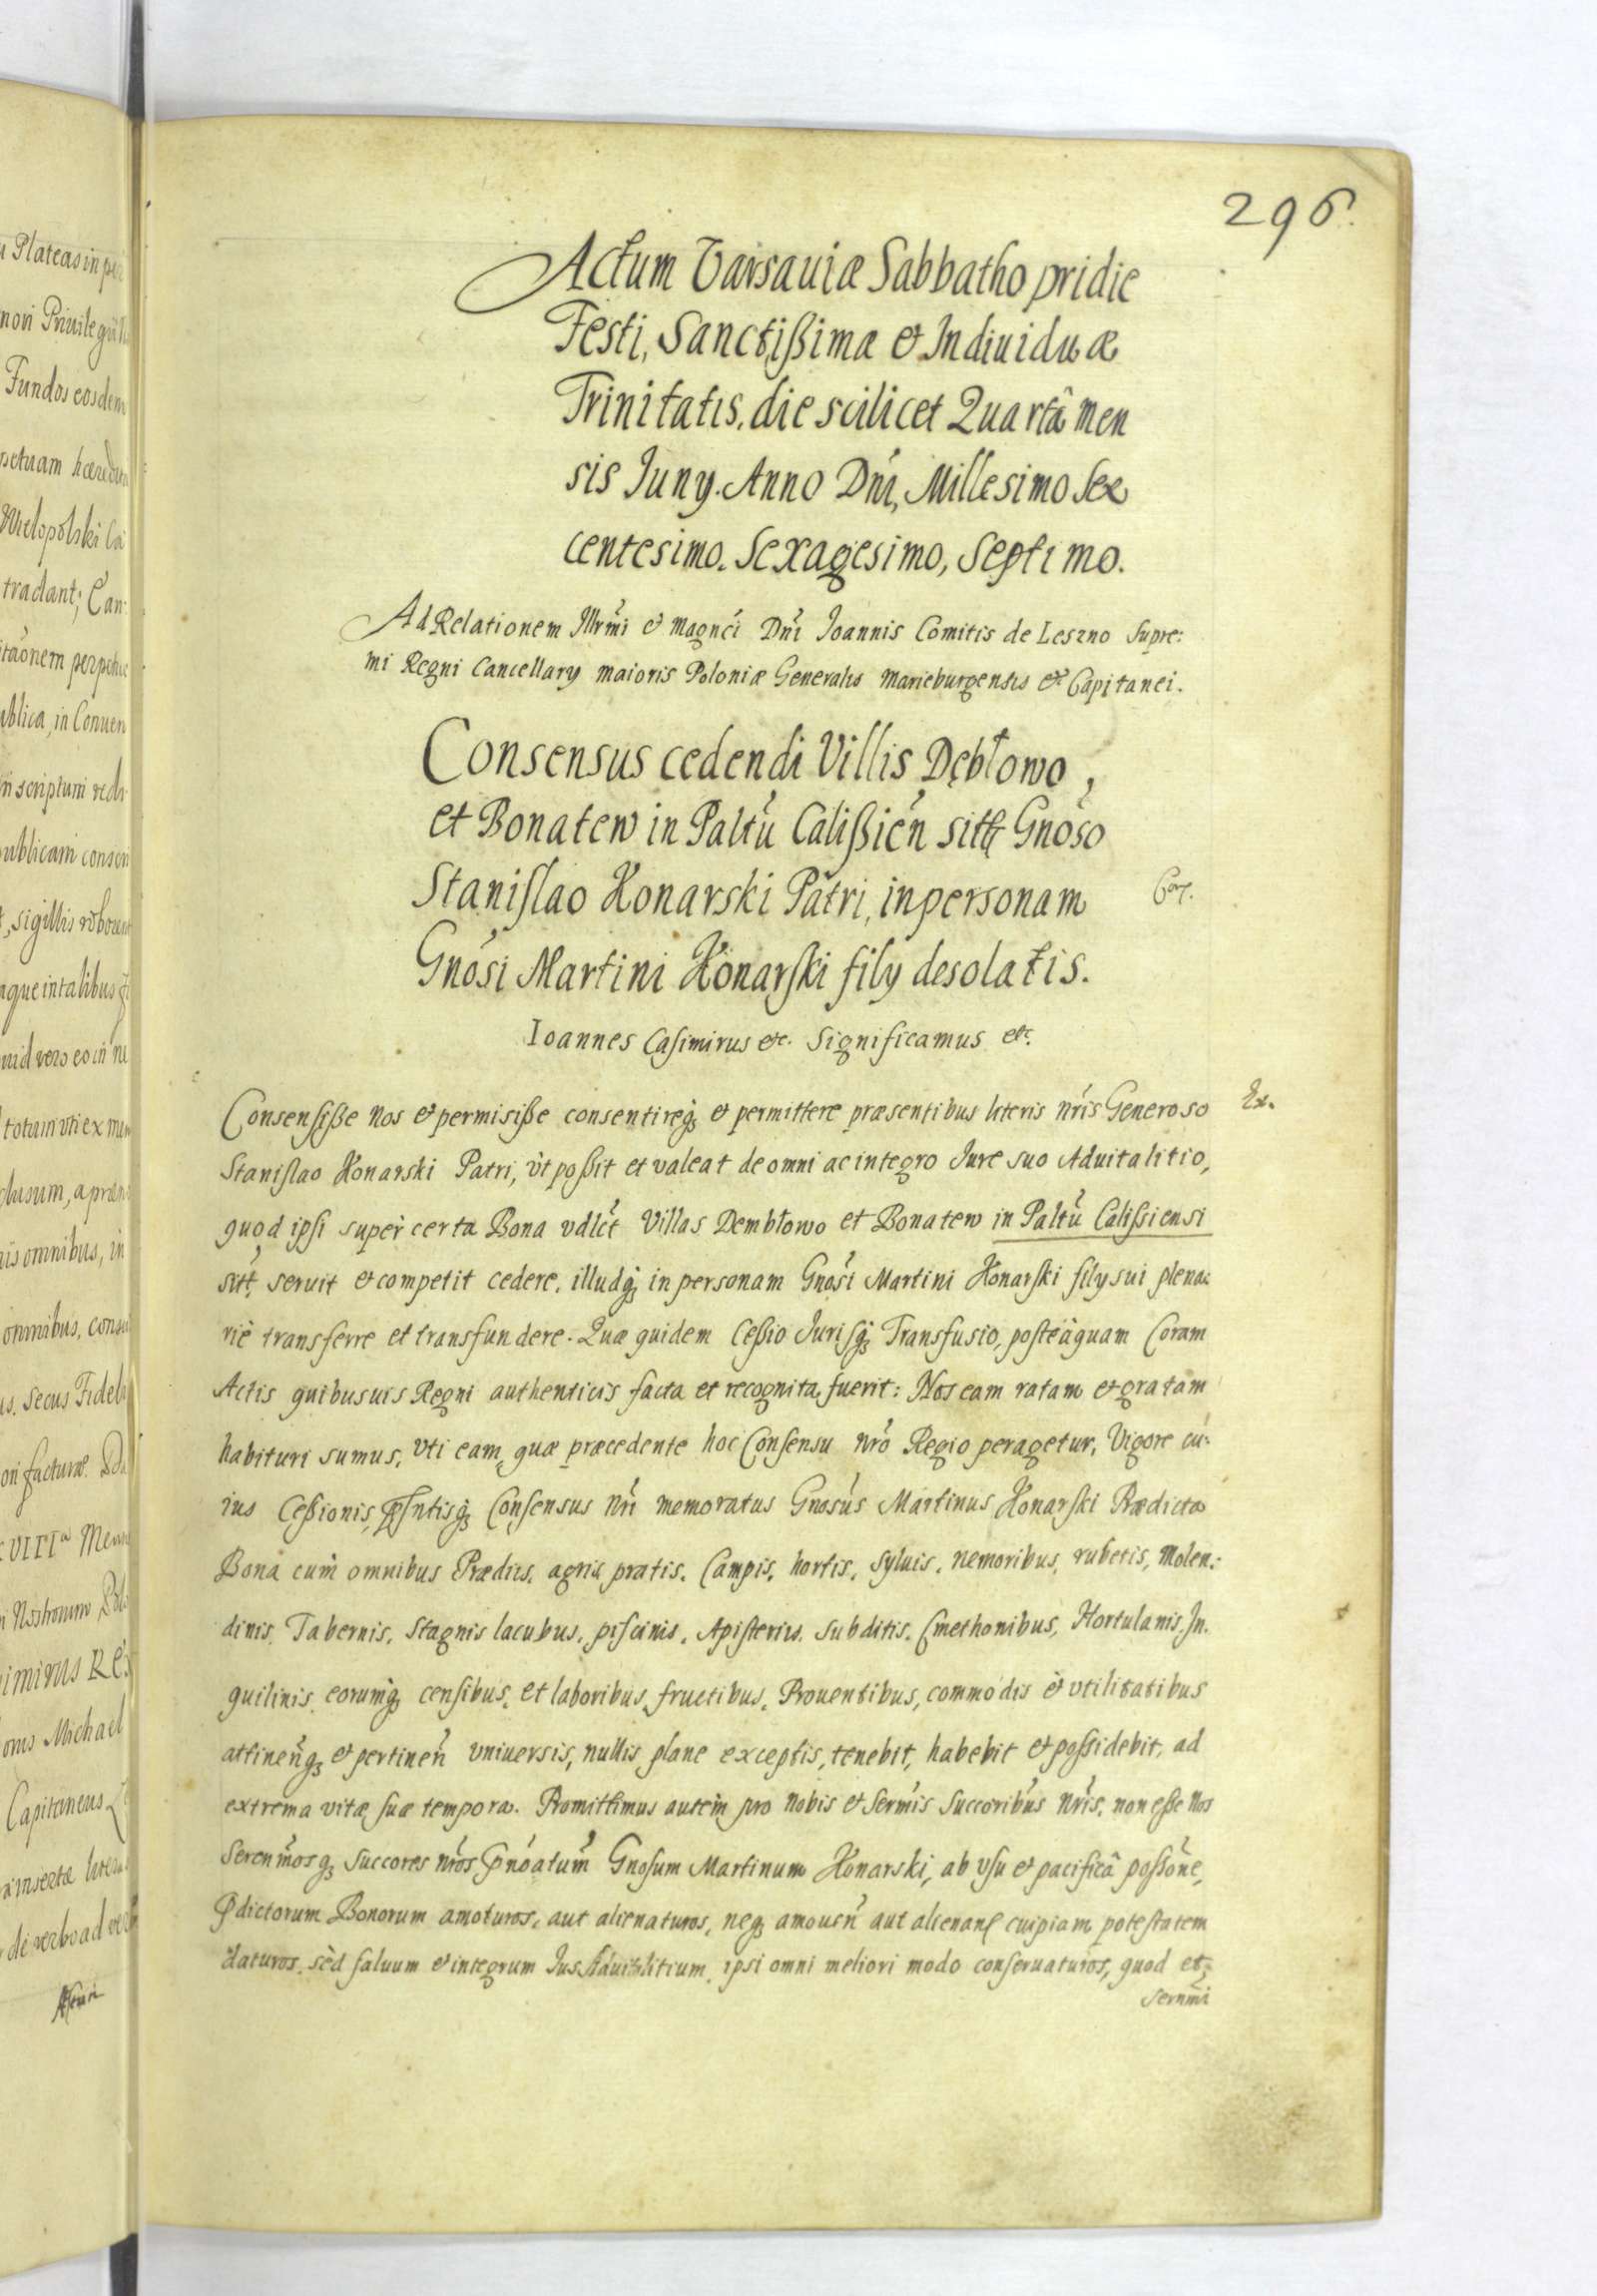 u Plateas in per
non Priuilegia
Fundos eosdem
petuam hæredita
Wielopolski Ca
tradant; Can:
itaōnem perpetue
ublica, in Conuen
ublicam consen
t, sigillis robora
aque in talibus
totum vti ex
clusum, a præm
is omnibus, in
omnibus, consu
us. Secus Fideli
ori facturæ
VIIIa Men
imirus Rex
Michael
Capitaneus
insertæ litera
de verbo ad ver
296.
Actum Varsauiæ Sabbatho pridie
Festi, Sanctißimæ et Indiuiduæ
Trinitatis, die scilicet Quartâ men
sis Juny. Anno Dni, Millesimo Sex
centesimo. Sexagesimo, Septimo.
Ad Relationem Illrmi et Magnci Dni Joannis Comitis de Leszno Supre:
mi Regni Cancellary maioris Poloniæ Generalis Marieburgensis etc Capitanei.
Consensus cedendi Villis Dębłowo,
et Bonatew in Paltū Calißien̄ sitꝭ Gnoso
Stanislao Konarski Patri, in personam
Gnosi Martini Konarski fily desolatis.
Ioannes Casimirus etc. Significamus etc.
Consensiße Nos et permisiße consentireqꝫ et permittere præsentibus literis nris Generoso
Ex.
Stanislao Konarski Patri, vt poßit et valeat de omni ac integro Jure suo Aduitalitio,
quod ipsi super certa Bona vdlct Villas Dembłowo et Bonatew in Paltū Calißiensi
sitt, seruit et competit cedere, illudqꝫ in personam Gnosi Martini Konarski fily sui plena:
riè transferre et transfundere. Quæ quidem Ceßio Jurisqꝫ Transfusio, posteàquam Coram
Actis quibusuis Regni authenticis facta et recognita fuerit: Nos eam ratam et gratam
habituri sumus, vti eam, quæ præcedente hoc Consensu nro Regio peragetur, Vigore cu:
ius Ceßionis, pꝛsntisqꝫ Consensus nri memoratus Gnosus Martinus Konarski Prædicta
Bona cum omnibus Prædiis, agris, pratis, Campis, hortis, Syluis, nemoribus, rubetis, Molen:
dinis, Tabernis, Stagnis lacubus, piscinis, Apisterius, Subditis, Cmethonibus, Hortulanis, In:
quilinis, eorumqꝫ censibus, et laboribus, fructibus, Prouentibus, commodis et vtilitatibus
attinen̄qꝫ et pertinen̄ vniuersis, nullis plane exceptis, tenebit, habebit et poßidebit, ad
extrema vitæ suæ tempora. Promittimus autem pro nobis et Sermis Succoribus nris, non eße Nos
Serenmosqꝫ Succores nros Pnoatum Gnosum Martinum Konarski, ab vsu et pacificâ poßone,
Pdictorum Bonorum amoturos, aut alienaturos, neqꝫ amouen̄ aut alienanꝭ cuipiam potestatem
daturos, sèd saluum et integrum Jus Aduitalitium, ipsi omni meliori modo conseruaturos, quod et
Sernmi